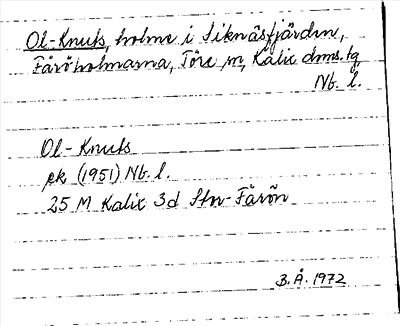 Ol-Knuts, holme i Siknäsfjärden,
Fåröholmarna, Töre sn, Kalix dms. tg,
Nb. l.
Ol-Knuts
ek (1951) Nb. l.
25 M Kalix 3d Stor-Fårön
B.Å. 1972